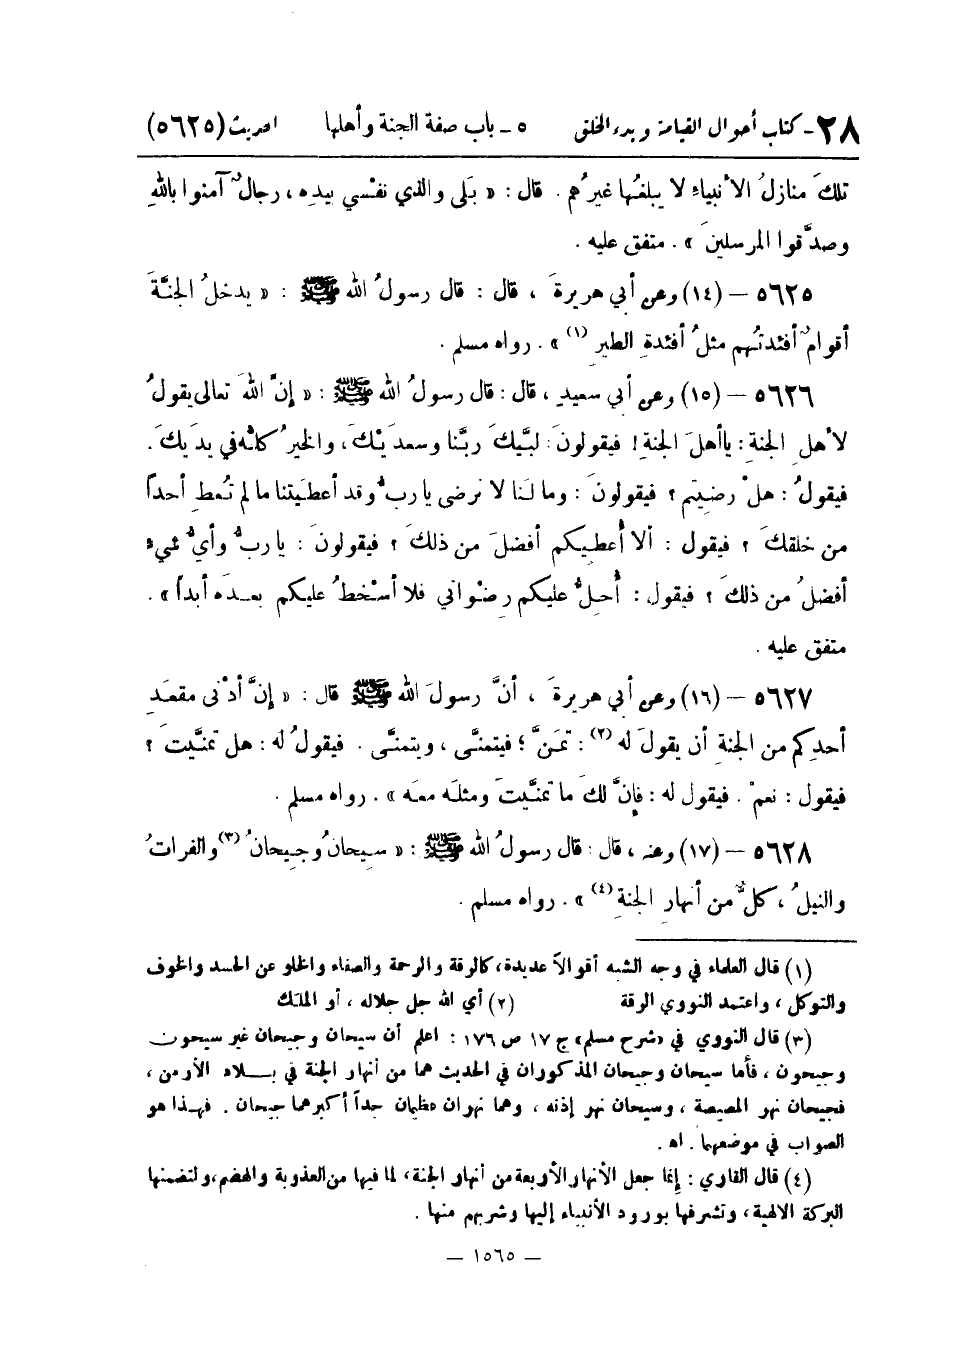 ٢٨ - كتاب أحوال القيامة وبدء الخلق ٥ - باب صفة الجنة وأهلها الحديث (٥٦٢٥)
تلكَ منازلُ الأنبياءِ لا يبلغُها غيرُهم . قال : « بَلى والذي نفْسي بيدِه ، رجالٌ آمنوا باللهِ
وصدَّقوا المرسلينَ » . متفق عليه .
٥٦٢٥ – (١٤) وعن أبي هريرةَ ، قال : قال رسولُ الله ﷺ : « يدخلُ الجنَّةَ
أقوامٌ أفئدتُهم مثلُ أفئدةِ الطيرِ (١) » . رواه مسلم .
٥٦٢٦ – (١٥) وعن أبي سعيدٍ ، قال : قال رسولُ الله ﷺ : « إنَّ اللهَ تعالى يقولُ
لأهلِ الجنةِ : ياأهلَ الجنةِ ! فيقولونَ : لبَّيكَ ربَّنا وسعدَيْكَ ، والخيرُ كلُّه في يدَيكَ .
فيقولُ : هلْ رضِيتم ؟ فيقولونَ : وما لَنا لا نرضى يا ربِّ وقد أعطَيتنا ما لم تُعطِ أحداً
من خلقكَ ؟ فيقول : ألا أُعطِيكم أفضلَ من ذلكَ ؟ فيقولونَ : يا ربِّ وأيُّ شيءٍ
أفضلُ من ذلكَ ؟ فيقول : أُحِلُّ عليكم رِضْواني فلا أسْخطُ عليكم بعدَه أبداً » .
متفق عليه .
٥٦٢٧ – (١٦) وعن أبي هريرةَ ، أنَّ رسولَ الله ﷺ قال : « إنَّ أدْنى مقعَدِ
أحدِكم من الجنةِ أن يقولَ له (٢) : تمَنَّ ؛ فيتمنَّى ، ويتمنَّى . فيقولُ له : هل تمنَّيتَ ؟
فيقول : نعمْ . فيقول له : فإنَّ لكَ ما تمنَّيتَ ومثلَه معَه » . رواه مسلم .
٥٦٢٨ – (١٧) وعنه ، قال : قال رسولُ الله ﷺ : « سيحانُ وجيحانُ (٣) والفراتُ
والنيلُ ، كلٌّ من أنهارِ الجنةِ (٤) » . رواه مسلم .
(١) قال العلماء في وجه الشبه أقوالاً عديدة ، كالرقة والرحمة والصفاء والخلو عن الحسد والخوف
والتوكل ، واعتمد النووي الرقة (٢) أي الله جل جلاله ، أو الملك
(٣) قال النووي في «شرح مسلم» ج ١٧ ص ١٧٦ : اعلم أن سيحان وجيحان غير سيحون
وجيحون ، فأما سيحان وجيحان المذكوران في الحديث هما من أنهار الجنة في بلاد الأرمن ،
فجيحان نهر المصيصة ، وسيحان نهر إذنه ، وهما نهران عظيمان جداً أكبرهما جيحان . فهذا هو
الصواب في موضعهما . اه .
(٤) قال القاري : إنما جعل الأنهار الأربعة من أنهار الجنة ، لما فيها من العذوبة والهضم ، ولتضمنها
البركة الالهية ، وتشرفها بورود الأنبياء إليها وشربهم منها .
— ١٥٦٥ —